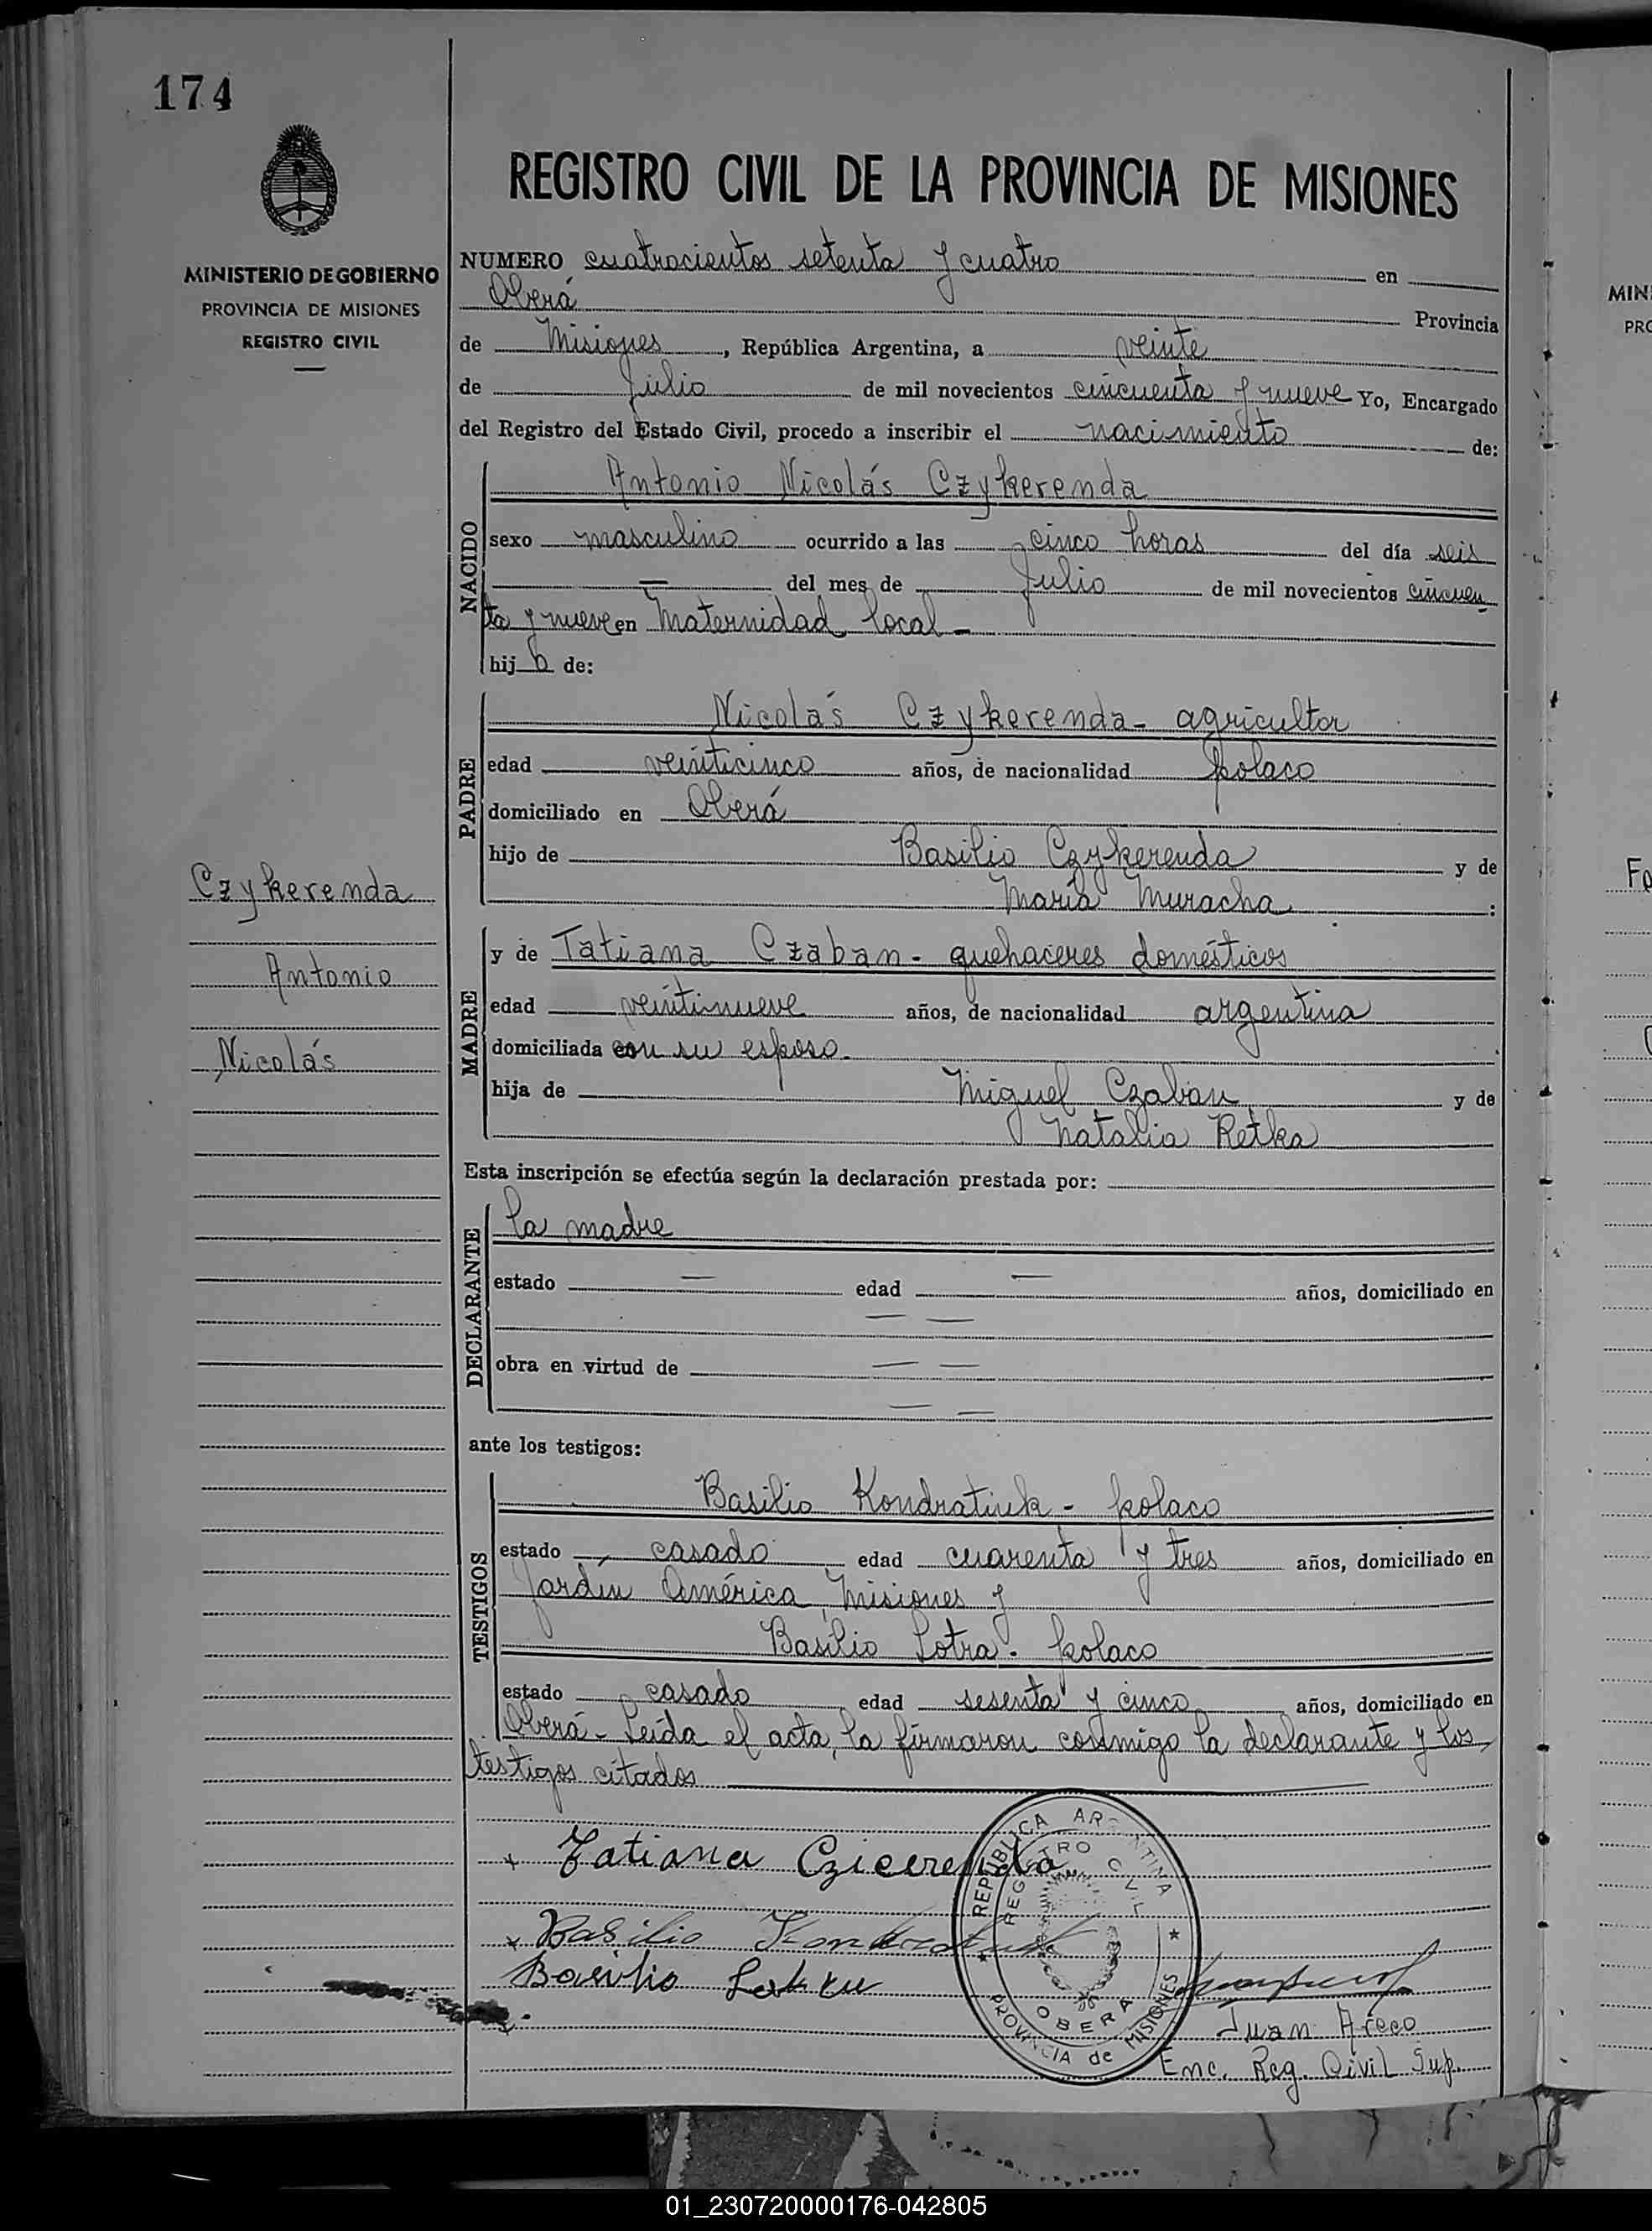 174
MINISTERIO DE GOBIERNO
PROVINCIA DE MISIONES
REGISTRO CIVIL
Czykerenda
Antonio
Nicolás
REGISTRO CIVIL DE LA PROVINCIA DE MISIONES
NUMERO cuatrocientos setenta y cuatro en
Oberá Provincia
de Misiones, República Argentina, a veinte
de Julio de mil novecientos cincuenta y nueve Yo, Encargado
del Registro del Estado Civil, procedo a inscribir el nacimiento de:
NACIDO
Antonio Nicolás Czykerenda
sexo masculino ocurrido a las cinco horas del día seis
— del mes de Julio de mil novecientos cincuen
ta y nueve en Maternidad local -
hij o de:
PADRE
Nicolás Czykerenda - agricultor
edad veinticinco años, de nacionalidad polaco
domiciliado en Oberá
hijo de Basilio Czykerenda y de
María Muracha :
MADRE
y de Tatiana Czaban - quehaceres domésticos
edad veintinueve años, de nacionalidad argentina
domiciliada con su esposo.
hija de Miguel Czaban y de
Natalia Retka
Esta inscripción se efectúa según la declaración prestada por:
DECLARANTE
la madre
estado — edad — años, domiciliado en
— —
obra en virtud de — —
— —
ante los testigos:
TESTIGOS
Basilio Kondratiuk - polaco
estado casado edad cuarenta y tres años, domiciliado en
Jardín América, Misiones y
Basilio Lotra - polaco
estado casado edad sesenta y cinco años, domiciliado en
Oberá - Leída el acta, la firmaron conmigo la declarante y los
testigos citados
Tatiana Czicerenda
Basilio Kondratiuk
Basilio
REPÚBLICA ARGENTINA
REGISTRO CIVIL
OBERA
PROVINCIA de MISIONES
Juan Areco
Enc. Reg. Civil Sup.
MIN
PRO
Fe
01_230720000176-042805